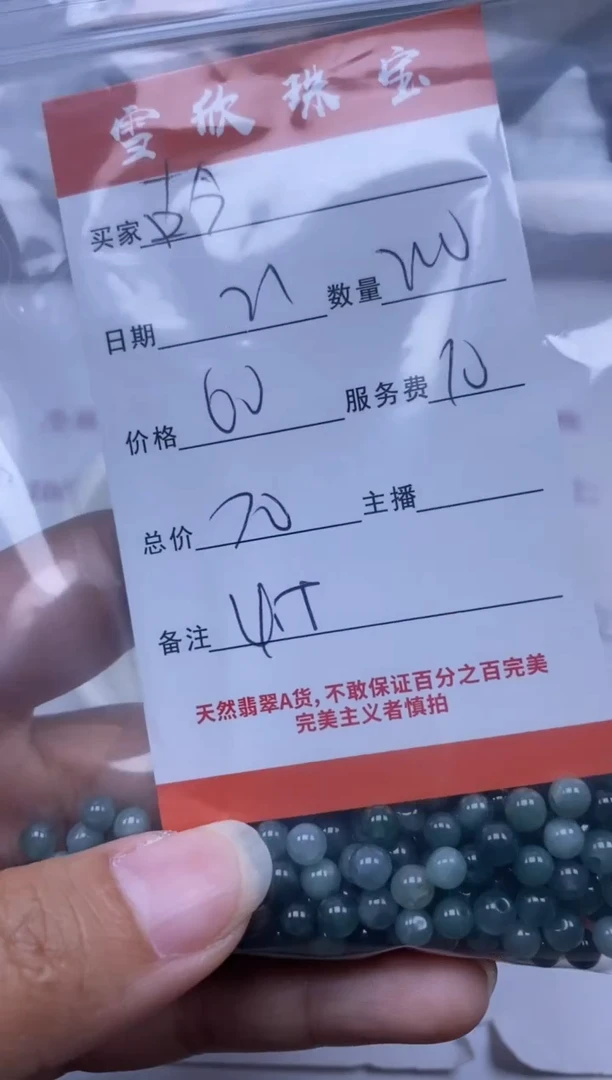 雪欣珠宝
买家
日期 21 数量 200
价格 60 服务费 10
总价 70 主播
备注
天然翡翠A货,不敢保证百分之百完美
完美主义者慎拍